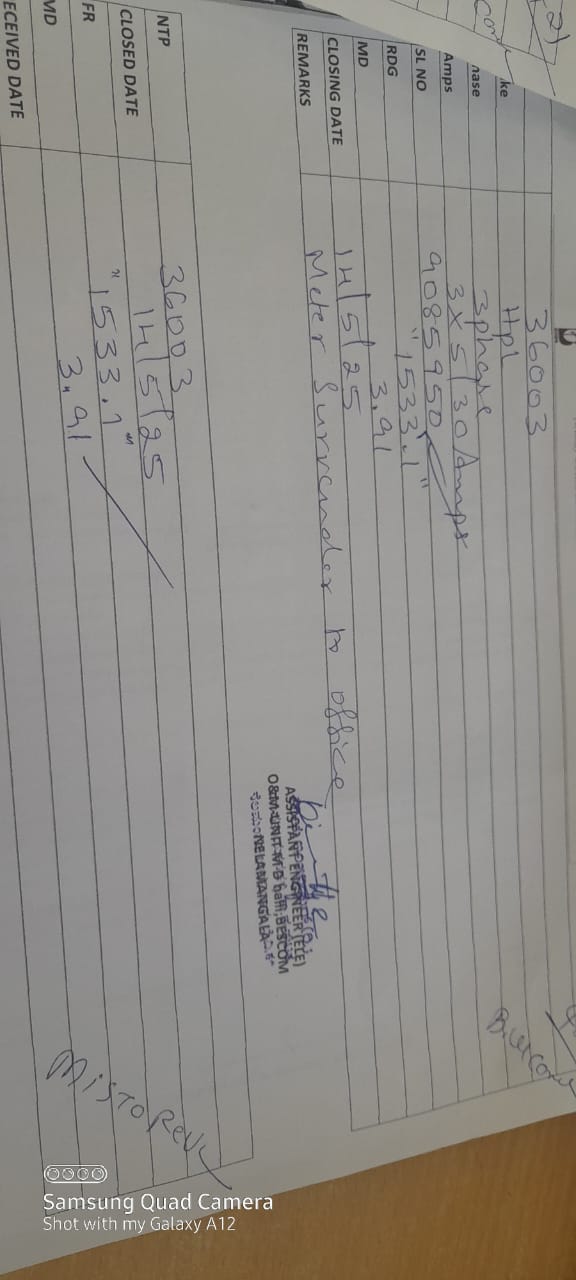 36003
ke Hpl
hase 3phase
Amps 3x5/30Amps
SL NO 9085950
RDG "1533.1"
MD 3.91
CLOSING DATE 14/5/25
REMARKS Meter Surrender to office
ASSISTANT ENGINEER (ELE)
O&M UNIT BESCOM
NELAMANGALA
NTP 36003
CLOSED DATE 14/5/25
FR "1533.1"
MD 3.91
ECEIVED DATE
Samsung Quad Camera
Shot with my Galaxy A12